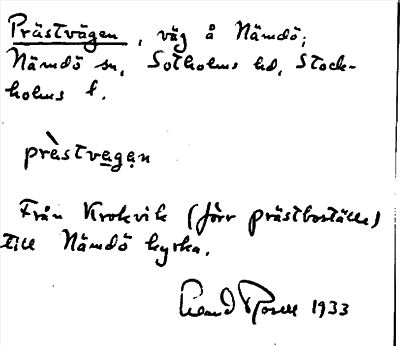 Prästvägen, väg å Nämdö;
Nämdö sn, Sotholms hd, Stock-
holms l.
prὲstvągąn
Från Krokvik (förr prästboställe)
till Nämdö kyrka.
1933